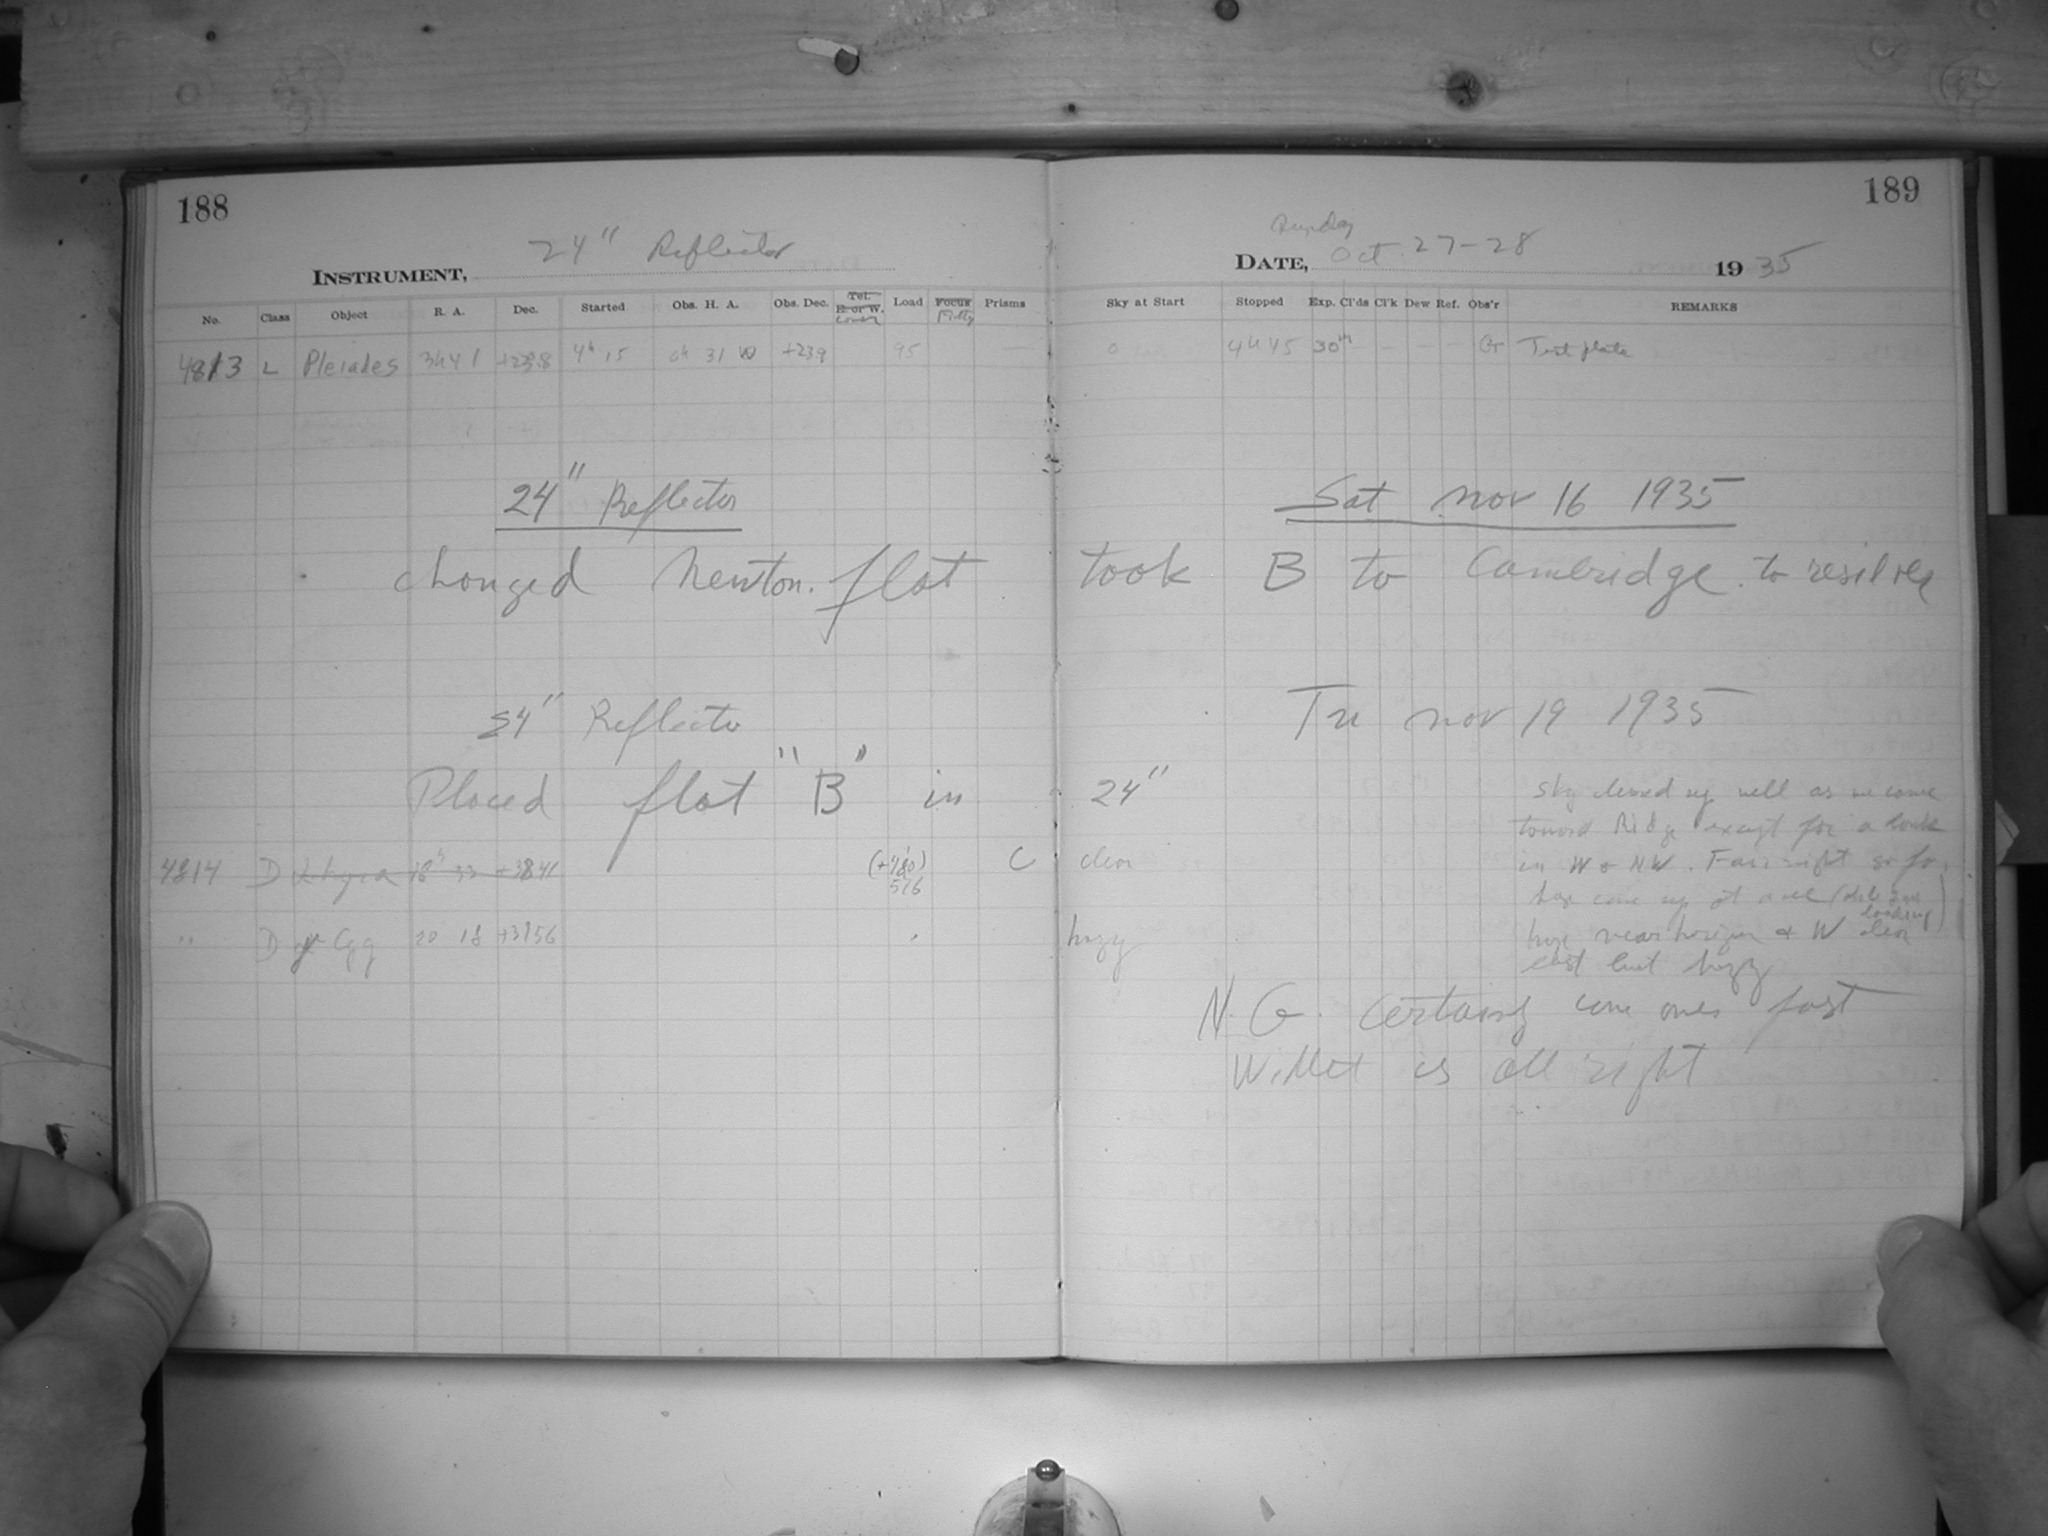 188
INSTRUMENT, 24" Reflector
No. Class Object R. A. Dec. Started Obs. H. A. Obs. Dec. Tel. E. or W. cover Load Focus Prisms
4813 L Pleiades 3h41 +23.8 4h 15 0h 31 W +23.9 95 —
24" Reflector
changed Newton. flat
24" Reflector
Placed flat "B" in
4814 D 18h 33 +3841 C
" D γ Cyg 20 18 +3956
189
Sunday
DATE, Oct 27-28 1935
Sky at Start Stopped Exp. Cl'ds Cl'k Dew Ref. Obs'r REMARKS
0 4h45 30m - - - - Gr Test plate
Sat Nov 16 1935
took B to Cambridge. to resilver
Tu Nov 19 1935
24"
Sky cleared up well as we came
toward Ridge except for a bank
clear in W & NW. Fair night so far
haze came up
looking
hazy haze near horizon & W clear
east but hazy
N. G. certainly fast
is all right